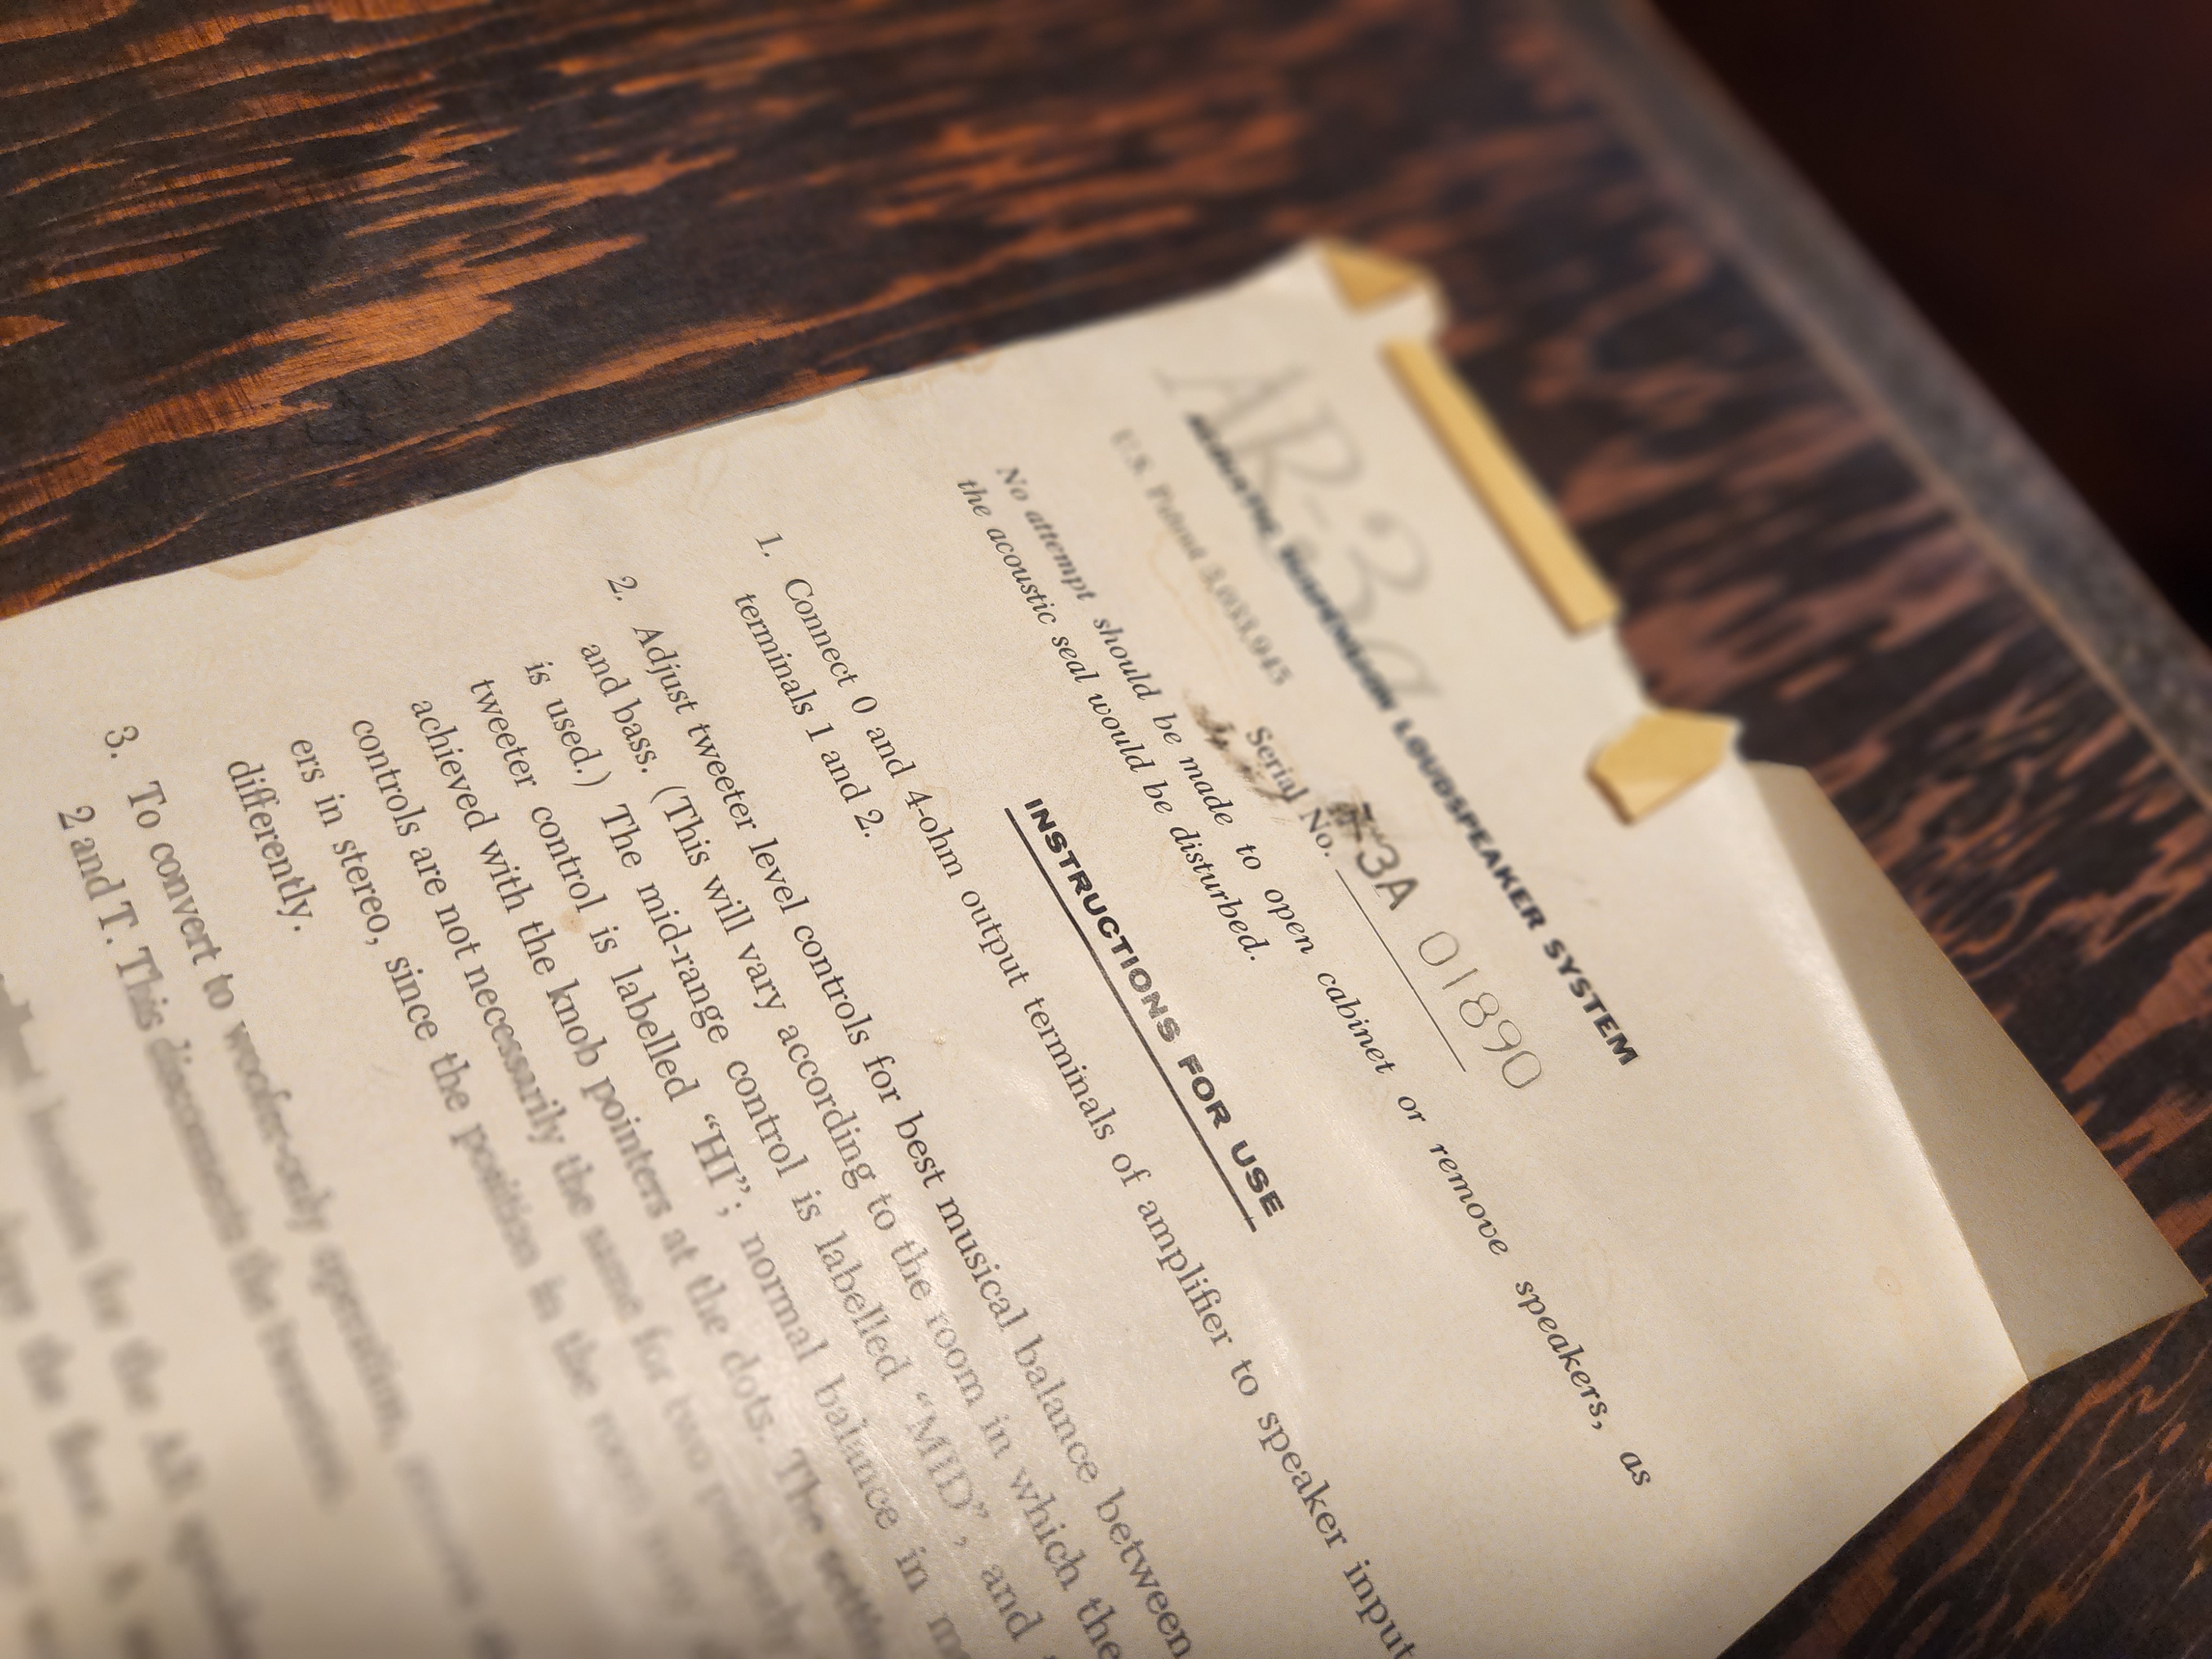 AR-3a
ACOUSTIC SUSPENSION LOUDSPEAKER SYSTEM
U.S. Patent
Serial No. #3A 01890
No attempt should be made to open cabinet or remove speakers, as
the acoustic seal would be disturbed.
INSTRUCTIONS FOR USE
1. Connect 0 and 4-ohm output terminals of amplifier to speaker input
terminals 1 and 2.
2. Adjust tweeter level controls for best musical balance between
and bass. (This will vary according to the room in which the
is used.) The mid-range control is labelled “MID”, and
tweeter control is labelled “HI”; normal balance in
achieved with the knob pointers at the dots. The
controls are not necessarily the same for two
ers in stereo, since the position in the room
differently.
3. To convert to woofer-only operation,
2 and T. This disconnects the tweeters.